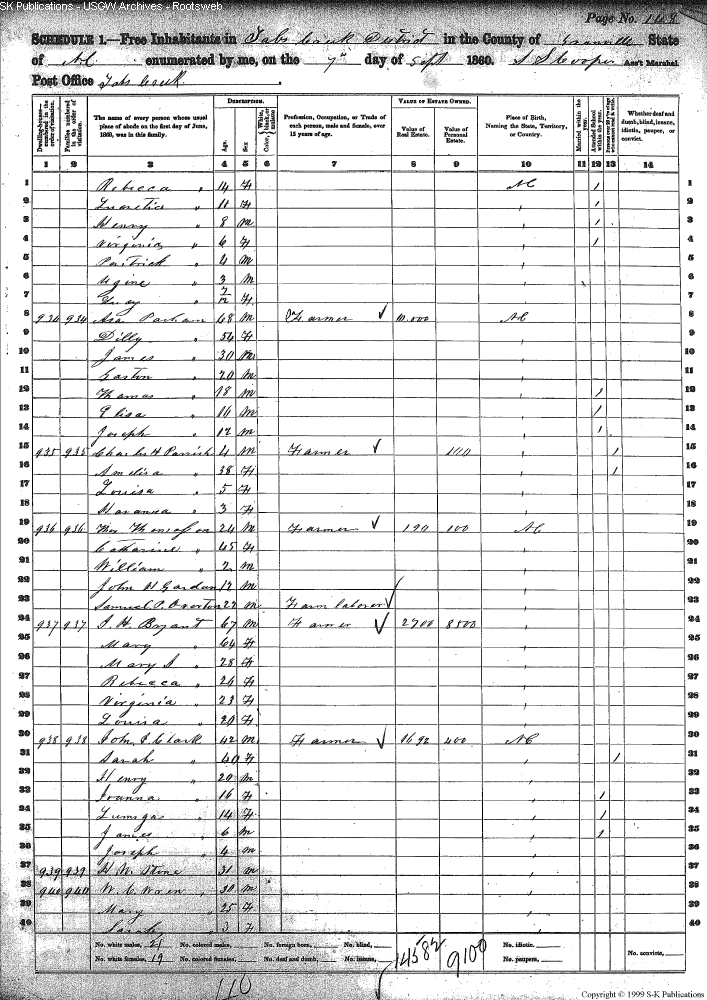 SK Publications - USGW Archives - Rootsweb
Page No. 148
SCHEDULE 1.—Free Inhabitants in Tabs Creek District in the County of Granville State
of NC enumerated by me, on the 7th day of Sept 1860. Ass't Marshal
Post Office Tabs Creek
Dwelling-houses— numbered in the order of visitation.
Families numbered in the order of visitation.
The name of every person whose usual place of abode on the first day of June, 1860, was in this family.
DESCRIPTION.
Age.
Sex.
Color, White, black, or mulatto.
Profession, Occupation, or Trade of each person, male and female, over 15 years of age.
VALUE OF ESTATE OWNED.
Value of Real Estate.
Value of Personal Estate.
Place of Birth, Naming the State, Territory, or Country.
Married within the year.
Attended School within the year.
Whether deaf and dumb, blind, insane, idiotic, pauper, or convict.
1 2 3 4 5 6 7 8 9 10 11 12 13 14
1 Rebecca " 14 F NC 1 1
2 Lucretia " 11 F 1 2
3 Henry " 8 M 1 3
4 Virginia " 6 F 1 4
5 Patrick " 4 M 5
6 Ugine " 3 M 6
7 Lucy " F 7
8 934 934 Asa Parham 68 M Farmer 10,000 NC 8
9 Dilly " 54 F 9
10 James " 30 M 10
11 Gaston " 20 M 11
12 Thomas " 18 M 1 12
13 Elisa " 16 M 1 13
14 Joseph " 12 M 1 14
15 935 935 Charles H Parrish 4 M Farmer 100 1 15
16 " 38 F 1 16
17 Louisa " 5 F 17
18 Havanna " 3 F 18
19 936 936 24 M Farmer 190 100 NC 19
20 Catharine " 45 F 20
21 William " 2 M 21
22 John H 12 M 22
23 Samuel P. Overton 22 M Farm laborer 23
24 937 937 J. H. Bryant 67 M Farmer 2700 8500 24
25 Mary " 64 F 25
26 Mary S " 28 F 26
27 Rebecca " 26 F 27
28 Virginia " 23 F 28
29 Louisa " 20 F 29
30 938 938 John J. Clark 42 M Farmer 1692 400 NC 30
31 Sarah " 40 F 1 31
32 Henry " 20 M 32
33 Joanna " 16 F 1 33
34 " 14 F 1 34
35 James " 6 M 1 35
36 Joseph " 4 M 36
37 939 939 H. W. Stone 31 M 37
38 940 940 W. C. Wren 30 M 38
39 Mary 25 F 39
40 Sarah 3 F 40
No. white males, 21 No. colored males, No. foreign born, No. blind, 14582 9100 No. idiotic.
No. white females, 19 No. colored females, No. deaf and dumb, No. insane, No. paupers, No. convicts,
110
Copyright © 1999 S-K Publications